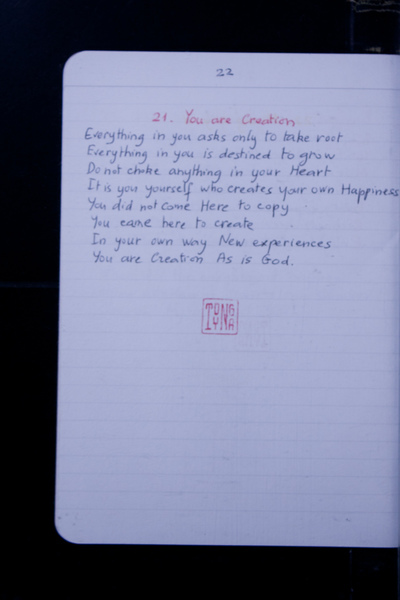 22
21. You are Creation
Everything in you asks only to take root
Everything in you is destined to grow
Do not choke anything in your Heart
It is you yourself who creates your own Happiness
You did not come Here to copy
You came here to create
In your own way New experiences
You are Creation As is God.